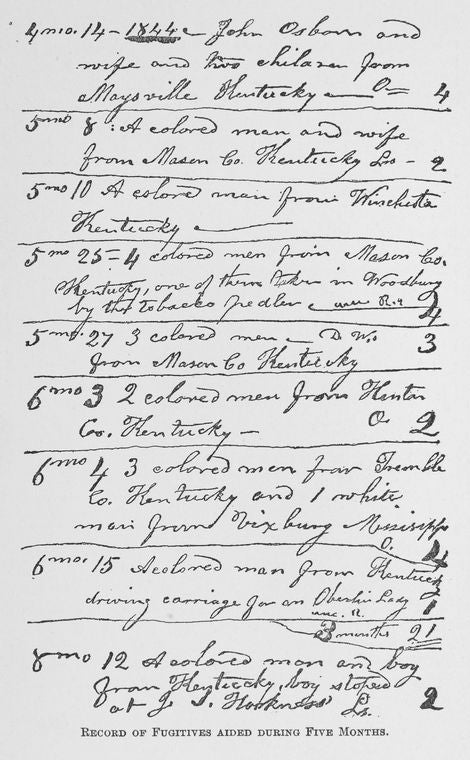 4 mo. 14 - 1844 - John Osborn and
wife and two children from
Maysville Kentucky — O= 4
5 mo 8 : A colored man and wife
from Mason Co. Kentucky Ls - 2
5 mo 10 A colored man from Winchester
Kentucky —
5 mo 25 = 4 colored men from Mason Co.
Kentucky, one of them taken in Woodbury
by the tobacco pedler — R.
4
5 mo. 27 3 colored men — D W. 3
from Mason Co Kentucky
6 mo 3 2 colored men from Kenton
Co. Kentucky — O 2
6 mo 4 3 colored men from Tremble
Co. Kentucky and 1 white
man from Vixburg Missisippi
O. 4
6 mo. 15 A colored man from Kentucky
driving carriage for an Oberlin Lady 1
R.
3 months 21
8 mo 12 A colored man and boy
from Kentucky, boy stoped
at J. J. Harkness' Ls. 2
RECORD OF FUGITIVES AIDED DURING FIVE MONTHS.